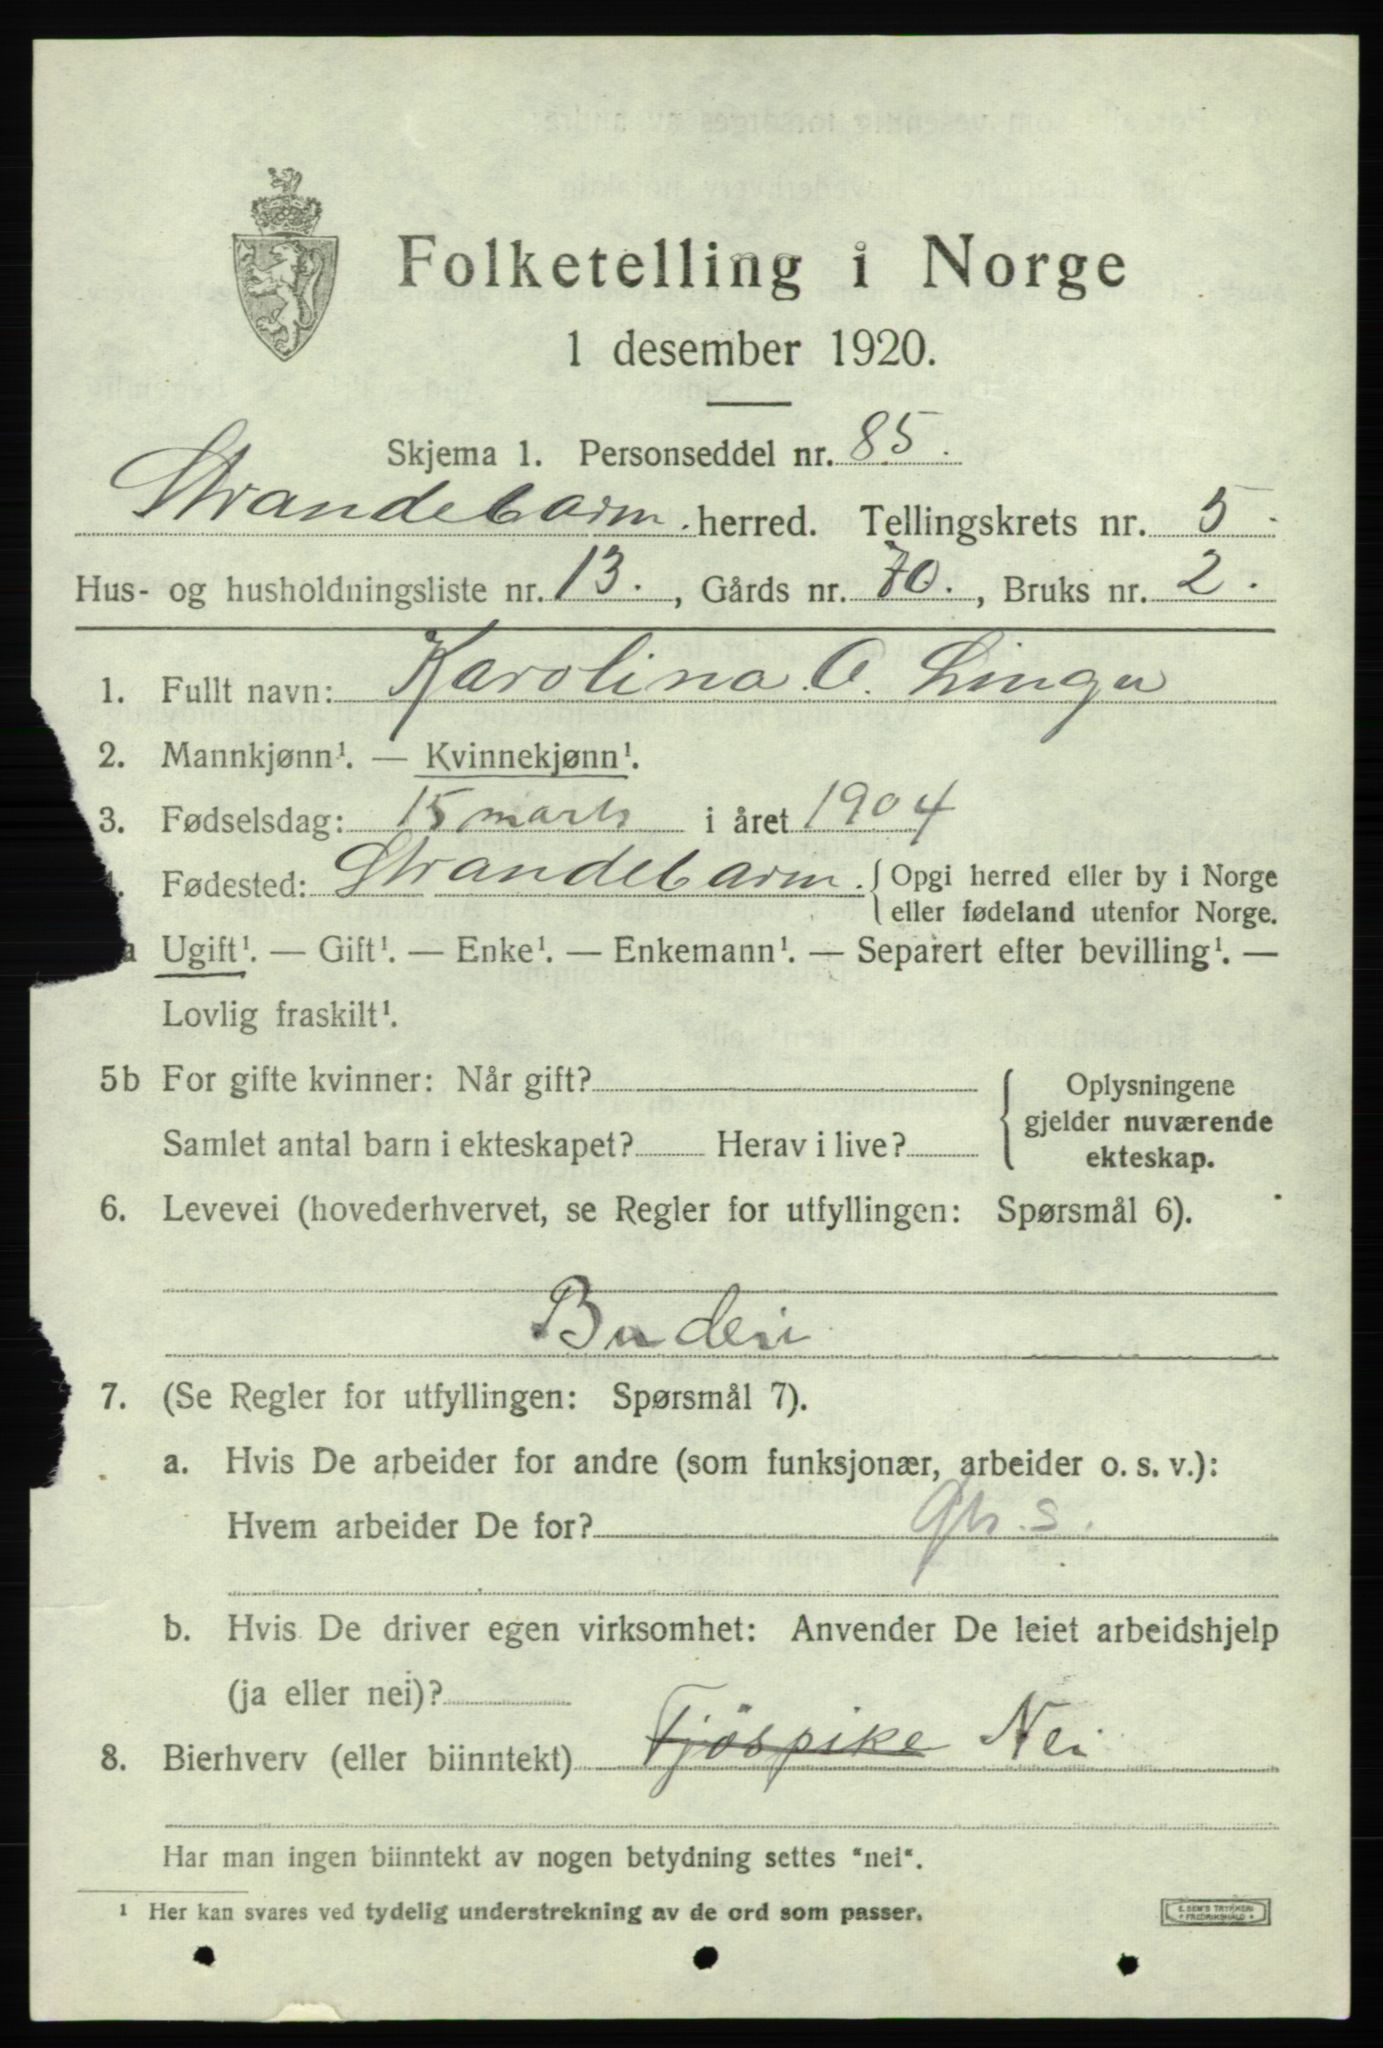 Folketelling i Norge
1 desember 1920.
Skjema 1. Personseddel nr. 85.
Strandebarm. herred. Tellingskrets nr. 5.
Hus- og husholdningsliste nr. 13., Gårds nr. 70., Bruks nr. 2.
1. Fullt navn: Karolina O. Linga
2. Mannkjønn¹. — Kvinnekjønn¹.
3. Fødselsdag: 15 marts i året 1904
Fødested: Strandebarm. { Opgi herred eller by i Norge
eller fødeland utenfor Norge.
a Ugift¹. — Gift¹. — Enke¹. — Enkemann¹. — Separert efter bevilling¹. —
Lovlig fraskilt¹.
5b For gifte kvinner: Når gift?
Samlet antal barn i ekteskapet? Herav i live?
{ Oplysningene
gjelder nuværende
ekteskap.
6. Levevei (hovederhvervet, se Regler for utfyllingen: Spørsmål 6).
Budeie
7. (Se Regler for utfyllingen: Spørsmål 7).
a. Hvis De arbeider for andre (som funksjonær, arbeider o. s. v.):
Hvem arbeider De for?
b. Hvis De driver egen virksomhet: Anvender De leiet arbeidshjelp
(ja eller nei)?
8. Bierhverv (eller biinntekt) Fjöspike Nei
Har man ingen biinntekt av nogen betydning settes "nei".
¹ Her kan svares ved tydelig understrekning av de ord som passer.
E. SEM'S TRYKKERI
FREDRIKSHALD